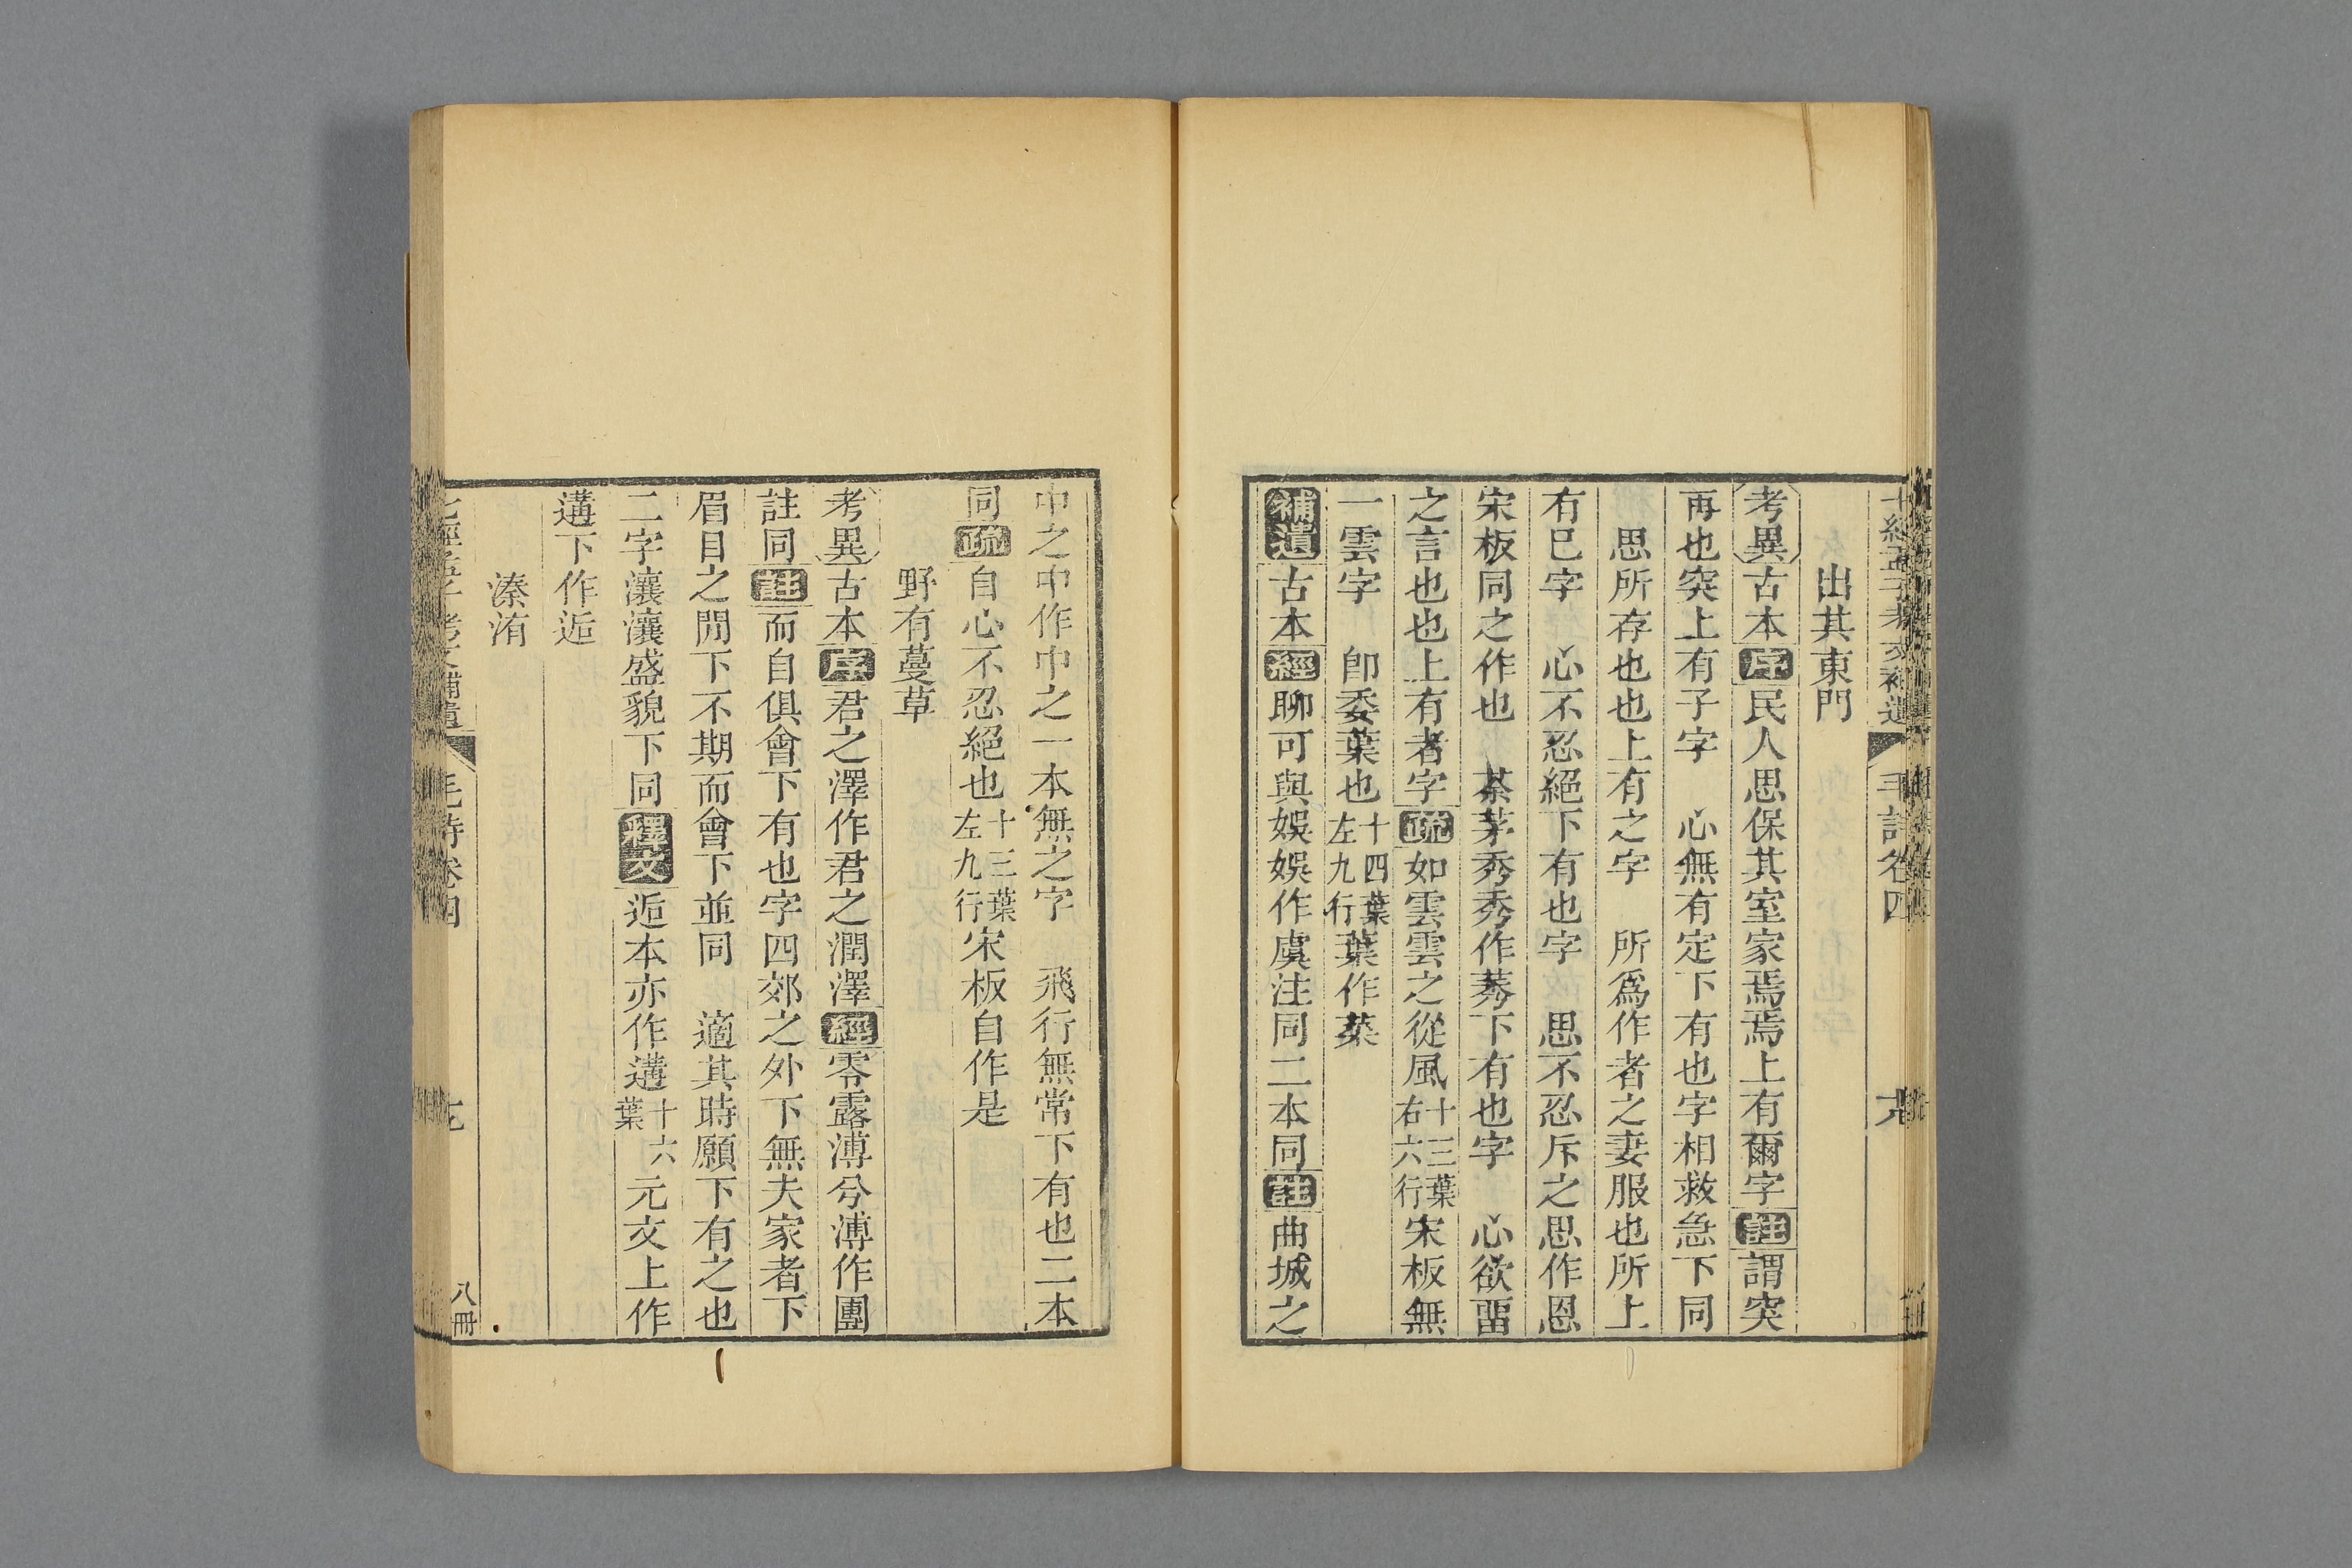 出其東門
考異古本序民人思保其室家焉焉上有爾字註謂突
再也突上有子字　心無有定下有也字相救急下同
思所存也也上有之字　所爲作者之妻服也所上
有已字　心不忍絕下有也字　思不忍斥之思作恩
宋板同之作也　荼茅秀秀作莠下有也字　心欲畱
之言也也上有者字疏如雲雲之從風十三葉右六行宋板無
一雲字　卽委葉也十四葉左九行葉作蘂
補遺古本經聊可與娛娛作虞注同二本同註曲城之
中之中作中之一本無之字　飛行無常下有也二本
同疏自心不忍絕也十三葉左九行宋板自作是
野有蔓草
考異古本序君之澤作君之潤澤經零露漙兮漙作團
註同註而自俱會下有也字四郊之外下無夫家者下
眉目之閒下不期而會下並同　適其時願下有之也
二字瀼瀼盛貌下同釋文逅本亦作遘十六葉元文上作
遘下作逅
溱洧
毛詩卷四
八冊